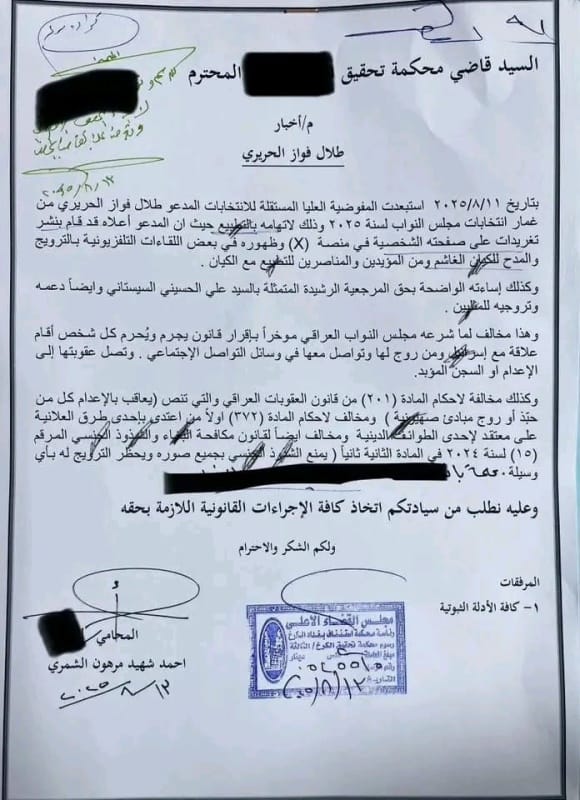 السيد قاضي محكمة تحقيق المحترم
م/أخبار
طلال فواز الحريري
بتاريخ ٢٠٢٥/٨/١١ استبعدت المفوضية العليا المستقلة للانتخابات المدعو طلال فواز الحريري من
غمار انتخابات مجلس النواب لسنة ٢٠٢٥ وذلك لاتهامه بالتطبيع حيث ان المدعو أعلاه قد قام بنشر
تغريدات على صفحته الشخصية في منصة (X) وظهوره في بعض اللقاءات التلفزيونية بالترويج
والمدح للكيان الغاشم ومن المؤيدين والمناصرين للتطبيع مع الكيان .
وكذلك إساءته الواضحة بحق المرجعية الرشيدة المتمثلة بالسيد علي الحسيني السيستاني وايضاً دعمه
وترويجه للمثليين .
وهذا مخالف لما شرعه مجلس النواب العراقي موخراً بإقرار قانون يجرم ويُحرم كل شخص أقام
علاقة مع إسرائيل ومن روج لها وتواصل معها في وسائل التواصل الإجتماعي . وتصل عقوبتها إلى
الإعدام أو السجن المؤبد.
وكذلك مخالفة لاحكام المادة (٢٠١) من قانون العقوبات العراقي والتي تنص (يعاقب بالإعدام كل من
حبّذ أو روج مبادئ صهيونية ) ومخالف لاحكام المادة (٣٧٢) اولاً من اعتدى بإحدى طرق العلانية
على معتقد لإحدى الطوائف الدينية ومخالف ايضاً لقانون مكافحة البغاء والشذوذ الجنسي المرقم
(١٥) لسنة ٢٠٢٤ في المادة الثانية ثانياً ( يمنع الشذوذ الجنسي بجميع صوره ويحظر الترويج له بأي
وسيلة
وعليه نطلب من سيادتكم اتخاذ كافة الإجراءات القانونية اللازمة بحقه
ولكم الشكر والاحترام
المرفقات
١- كافة الأدلة الثبوتية
مجلس القضاء الأعلى
رئاسة محكمة استئناف بغداد الكرخ
رسوم محكمة تحقيق الكرخ / الثالثة
٢٠٢٥/٨/١٣
المحامي
احمد شهيد مرهون الشمري
٢٠٢٥/٨/١٣